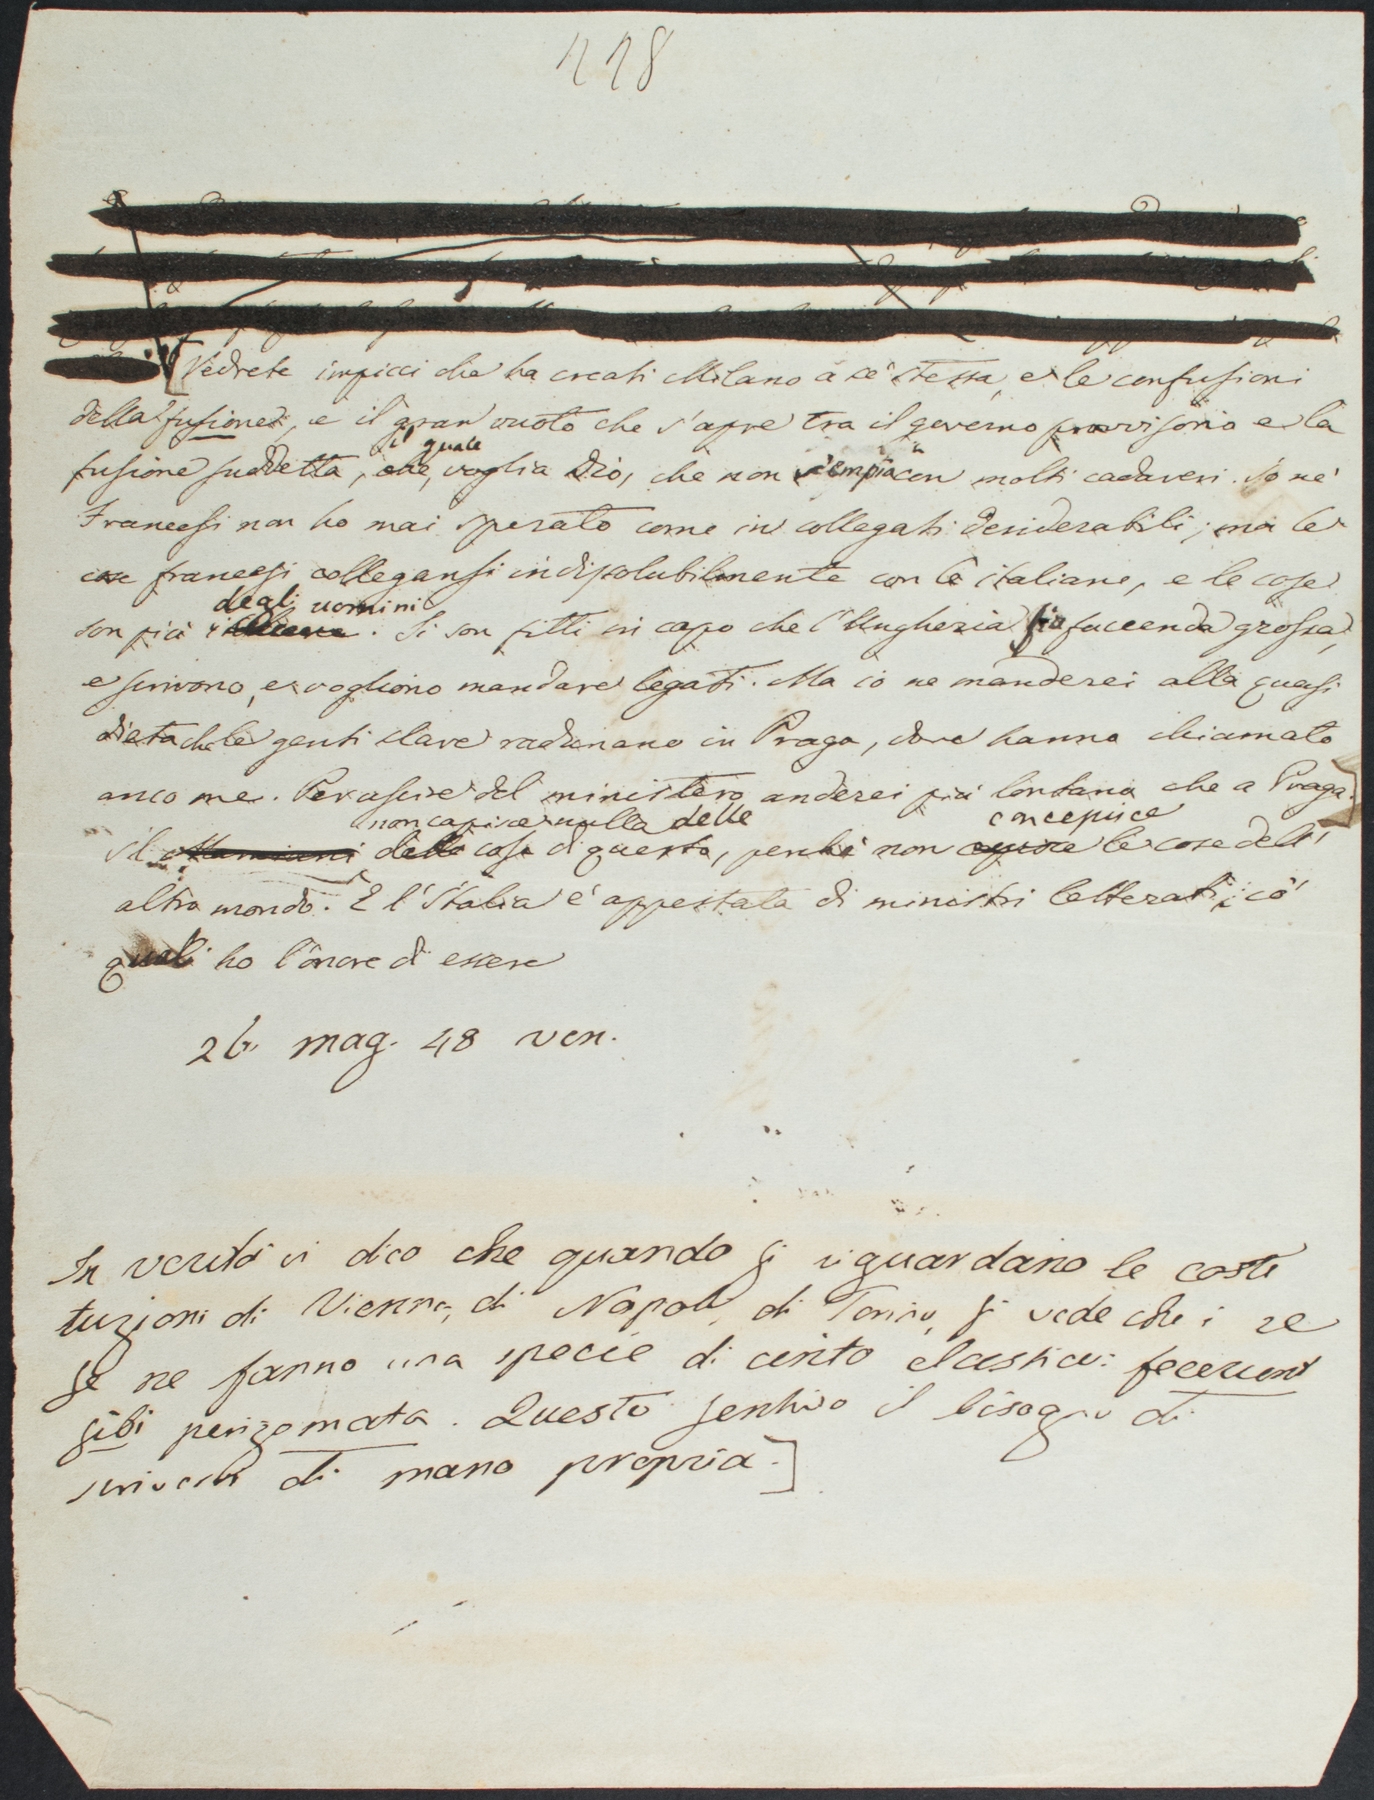 118
[Vedrete impicci che ha creati Milano a sè stessa, e le confusioni
della fusione, e il gran vuoto che s'apre tra il governo provvisorio e la
il quale
fusione suddetta, che, voglia Dio, che non s'empia con molti cadaveri. Io ne'
Francesi non ho mai sperato come in collegati desiderabili; ma le
cose francesi collegansi indissolubilmente con le italiane, e le cose
degli uomini
son più . Si son fitti in capo che l'Ungheria sia faccenda grossa,
e scrivono, e vogliono mandare legati. Ma io ne manderei alla quasi
dieta che le genti slave radunano in Praga, dove hanno chiamato
anco me. Per uscire del ministero anderei più lontano che a Praga.
non capisce nulla delle concepisce
Il Mamiani delle cose di questo, perchè non capisce le cose dell'
altro mondo. E l'Italia è appestata di ministri letterati; co'
quali ho l'onore di essere
26 mag. 48 ven.
In verità vi dico che quando si riguardano le costi
tuzioni di Vienna, di Napoli, di Torino, si vede che i re
se ne fanno una specie di cinto elastico: fecerunt
sibi perizomata. Questo sentivo il bisogno di
scrivervi di mano propria.]